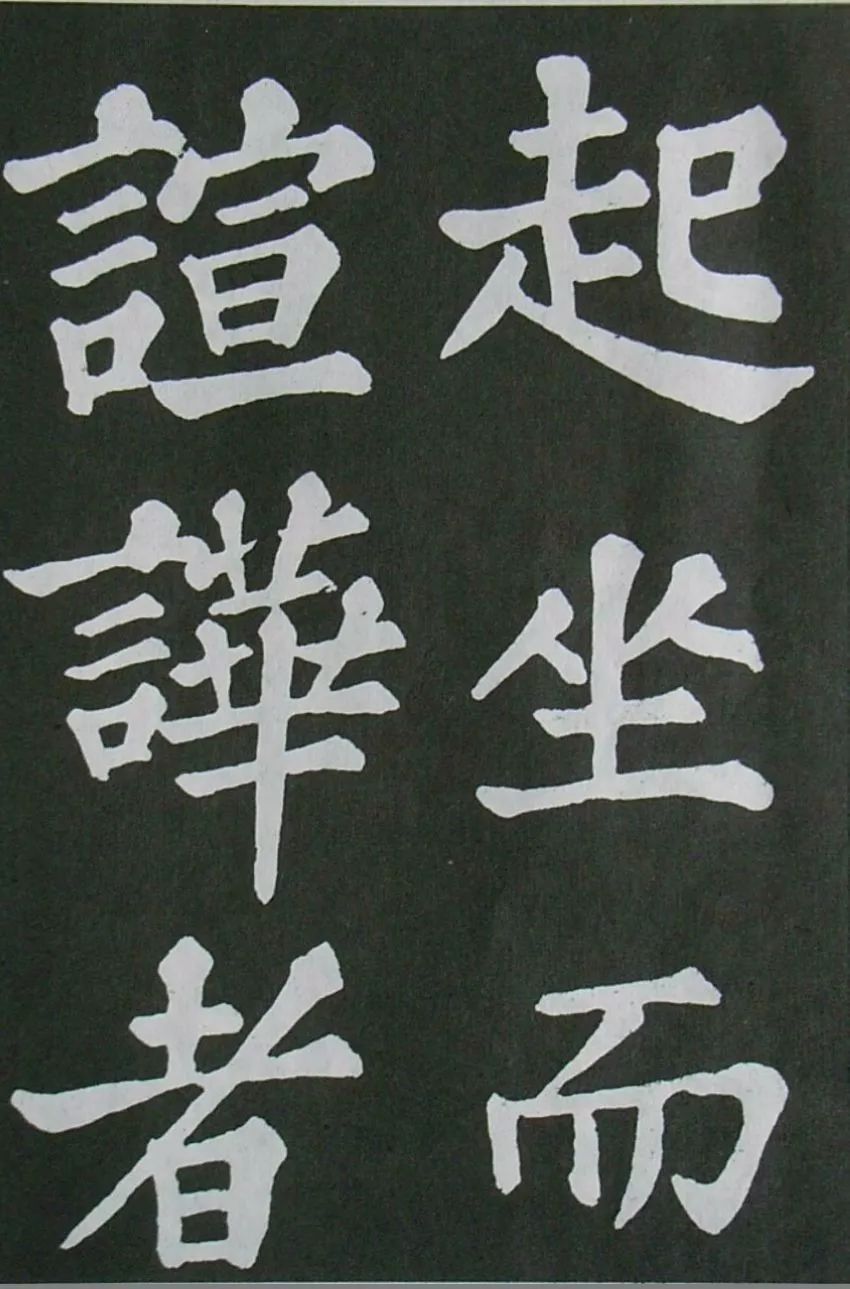 起坐而
諠譁者